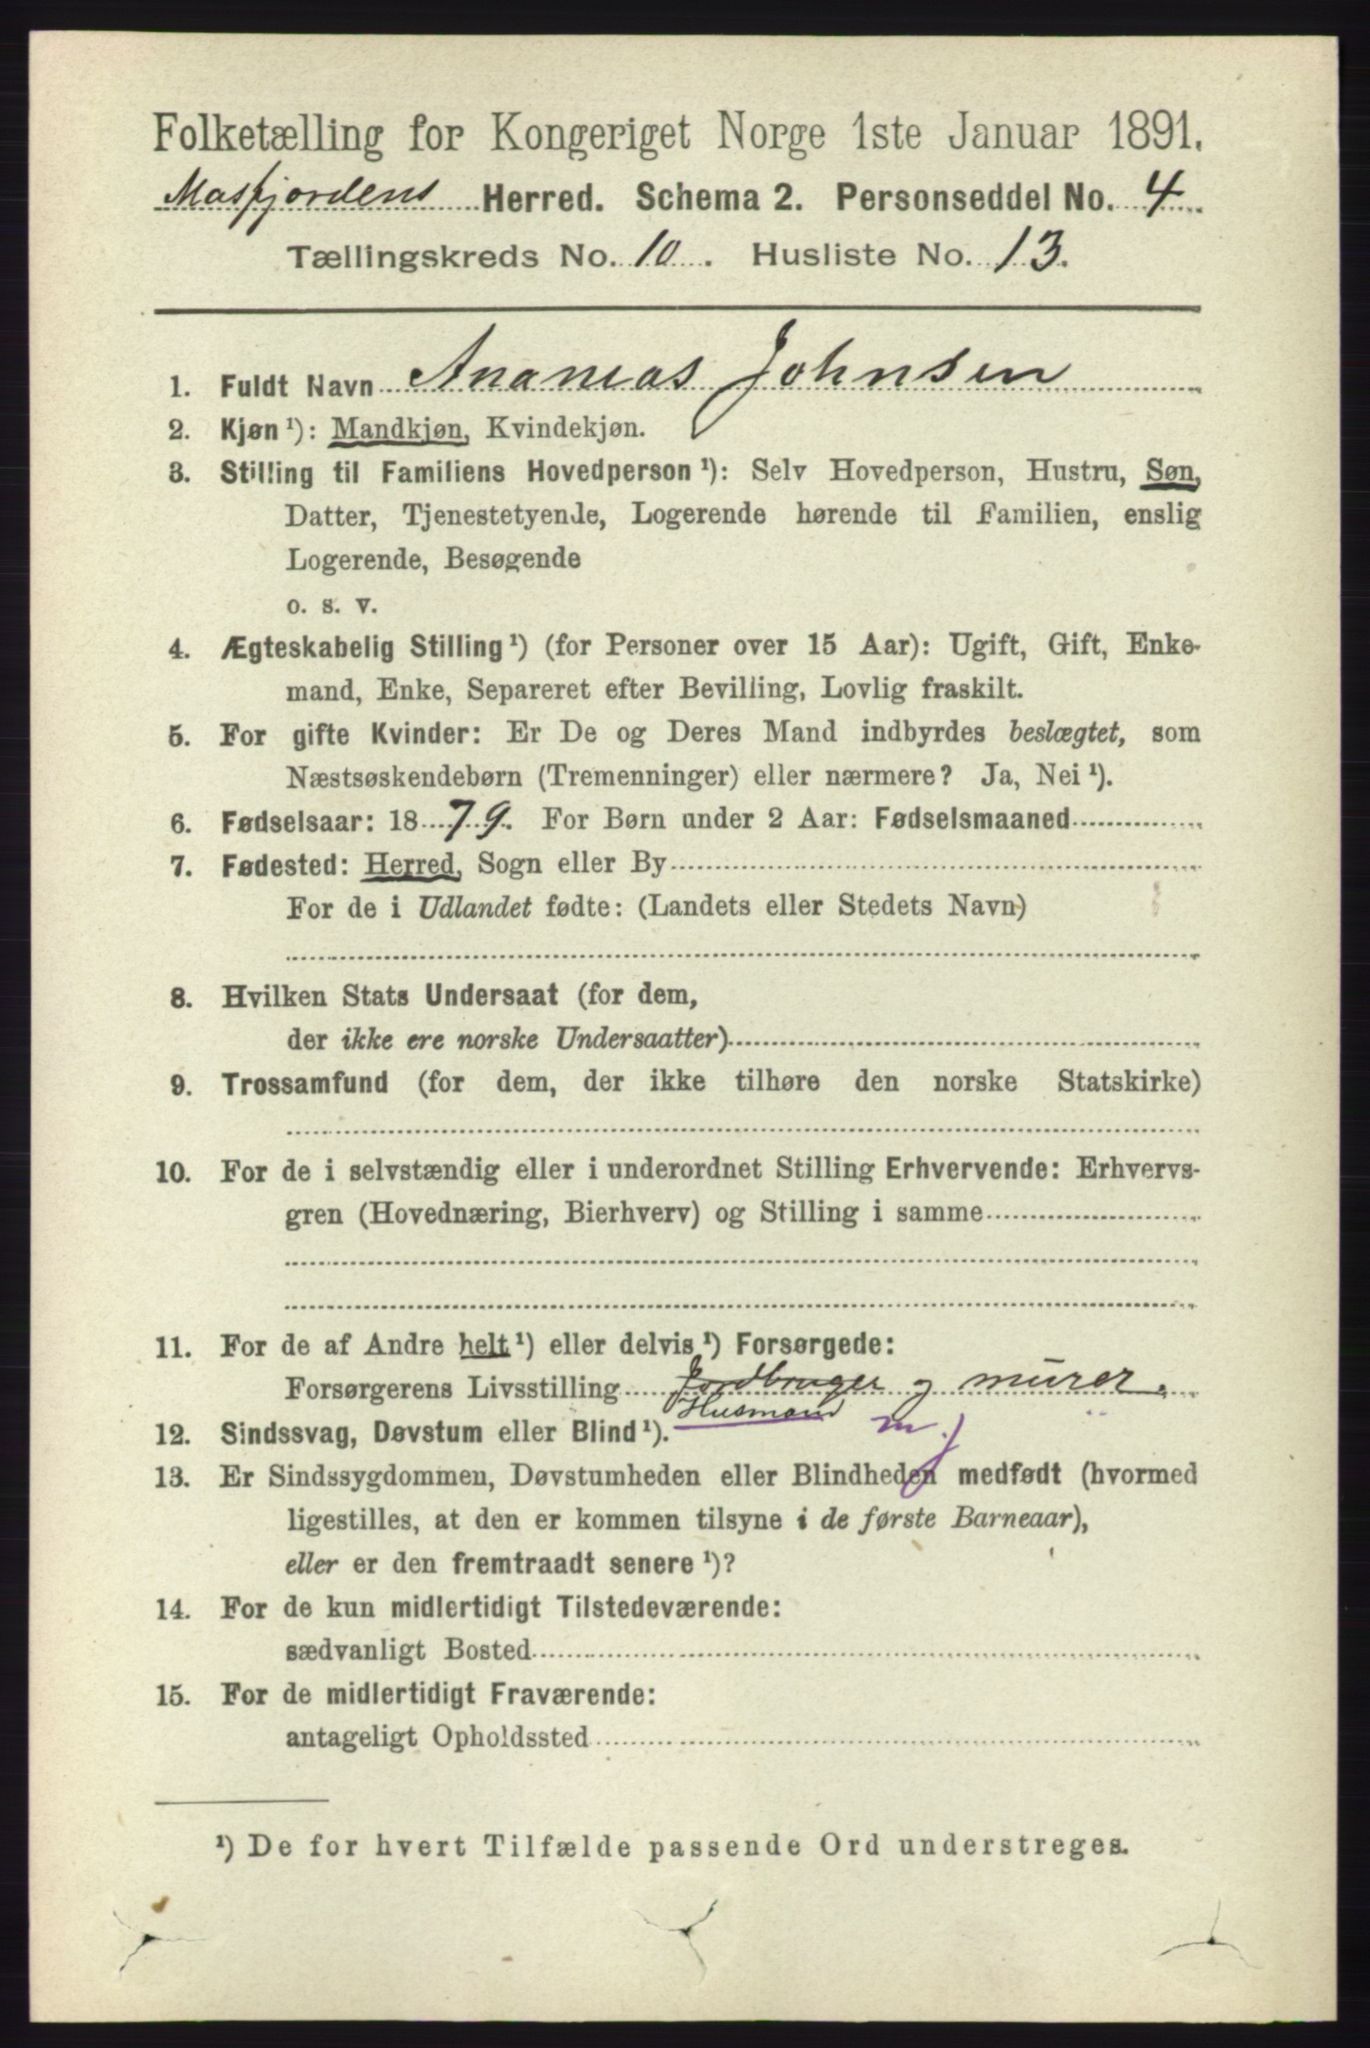 Folketælling for Kongeriget Norge 1ste Januar 1891.
Masfjordens Herred. Schema 2. Personseddel No. 4
Tællingskreds No. 10. Husliste No. 13.
1. Fuldt Navn Ananias Johnsen
2. Kjøn ¹): Mandkjøn, Kvindekjøn.
3. Stilling til Familiens Hovedperson ¹): Selv Hovedperson, Hustru, Søn,
Datter, Tjenestetyende, Logerende hørende til Familien, enslig
Logerende, Besøgende
o. s. v.
4. Ægteskabelig Stilling ¹) (for Personer over 15 Aar): Ugift, Gift, Enke-
mand, Enke, Separeret efter Bevilling, Lovlig fraskilt.
5. For gifte Kvinder: Er De og Deres Mand indbyrdes beslægtet, som
Næstsøskendebørn (Tremenninger) eller nærmere? Ja, Nei ¹).
6. Fødselsaar: 1879. For Børn under 2 Aar: Fødselsmaaned
7. Fødested: Herred, Sogn eller By
For de i Udlandet fødte: (Landets eller Stedets Navn)
8. Hvilken Stats Undersaat (for dem,
der ikke ere norske Undersaatter)
9. Trossamfund (for dem, der ikke tilhøre den norske Statskirke)
10. For de i selvstændig eller i underordnet Stilling Erhvervende: Erhvervs-
gren (Hovednæring, Bierhverv) og Stilling i samme
11. For de af Andre helt ¹) eller delvis ¹) Forsørgede:
Forsørgerens Livsstilling Jordbruger og murer.
Husmand m. j
12. Sindssvag, Døvstum eller Blind ¹).
13. Er Sindssygdommen, Døvstumheden eller Blindheden medfødt (hvormed
ligestilles, at den er kommen tilsyne i de første Barneaar),
eller er den fremtraadt senere ¹)?
14. For de kun midlertidigt Tilstedeværende:
sædvanligt Bosted
15. For de midlertidigt Fraværende:
antageligt Opholdssted
¹) De for hvert Tilfælde passende Ord understreges.